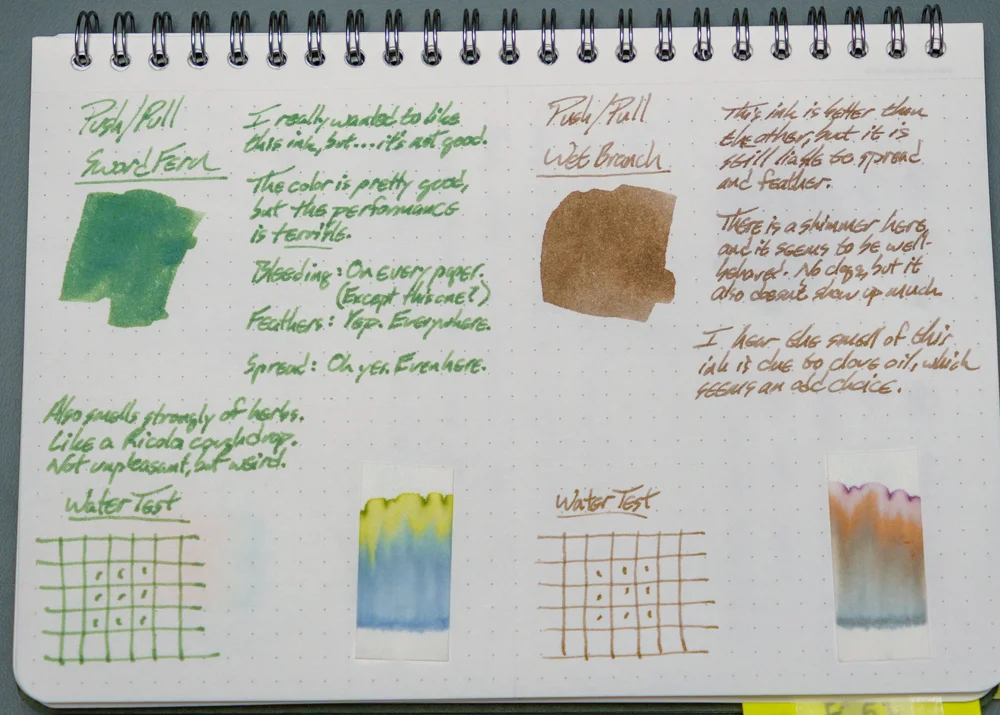 Push/Pull
Sword Fern
I really wanted to like
this ink, but...it's not good.
The color is pretty good,
but the performance
is terrible.
Bleeding: On every paper.
(Except this one?)
Feathers: Yep. Everywhere.
Spread: Oh yes. Even here.
Also smells strongly of herbs.
Like a Ricola cough drop.
Not unpleasant, but weird.
Water Test
Push/Pull
Wet Branch
This ink is better than
the other, but it is
still liable to spread
and feather.
There is a shimmer here
and it seems to be well-
behaved. No clogs, but it
also doesn't show up much.
I hear the smell of this
ink is due to clove oil, which
seems an odd choice.
Water Test